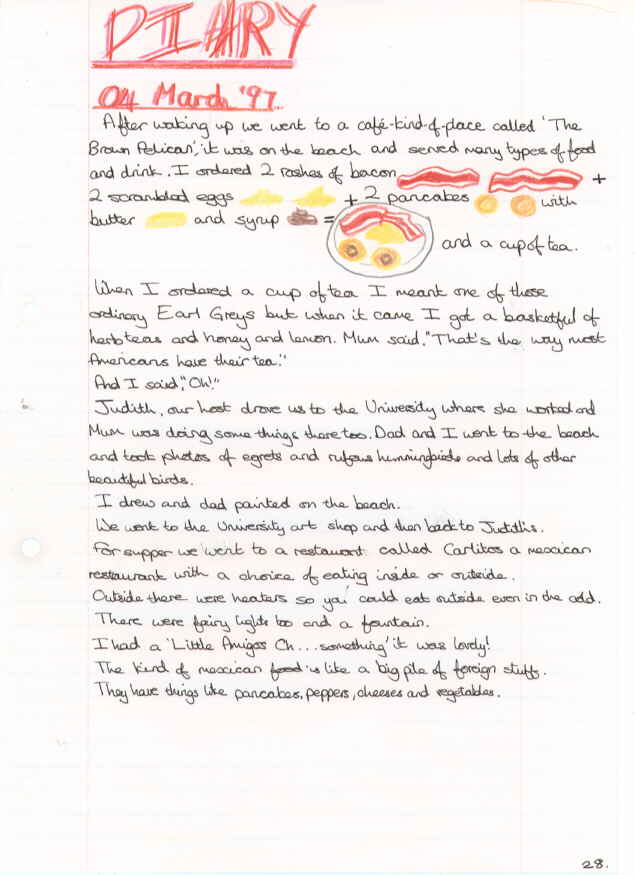 DIARY
04 March '97.
After waking up we went to a café-kind-of-place called 'The
Brown Pelican', it was on the beach and served many types of food
and drink. I ordered 2 rashes of bacon +
2 scrambled eggs + 2 pancakes with
butter and syrup =
and a cup of tea.
When I ordered a cup of tea I meant one of those
ordinary Earl Greys but when it came I got a basketful of
herbteas and honey and lemon. Mum said, "That's the way most
Americans have their tea."
And I said, "Oh!"
Judith, our host drove us to the University where she worked and
Mum was doing some things there too. Dad and I went to the beach
and took photos of egrets and rufous hummingbirds and lots of other
beautiful birds.
I drew and dad painted on the beach.
We went to the University art shop and then back to Judith's.
For supper we went to a restaurant called Carlitos a mexican
restaurant with a choice of eating inside or outside.
Outside there were heaters so you could eat outside even in the cold.
There were fairy lights too and a fountain.
I had a 'Little Amigos Ch... something' it was lovely!
The kind of mexican food is like a big pile of foreign stuff.
They have things like pancakes, peppers, cheeses and vegetables.
28.